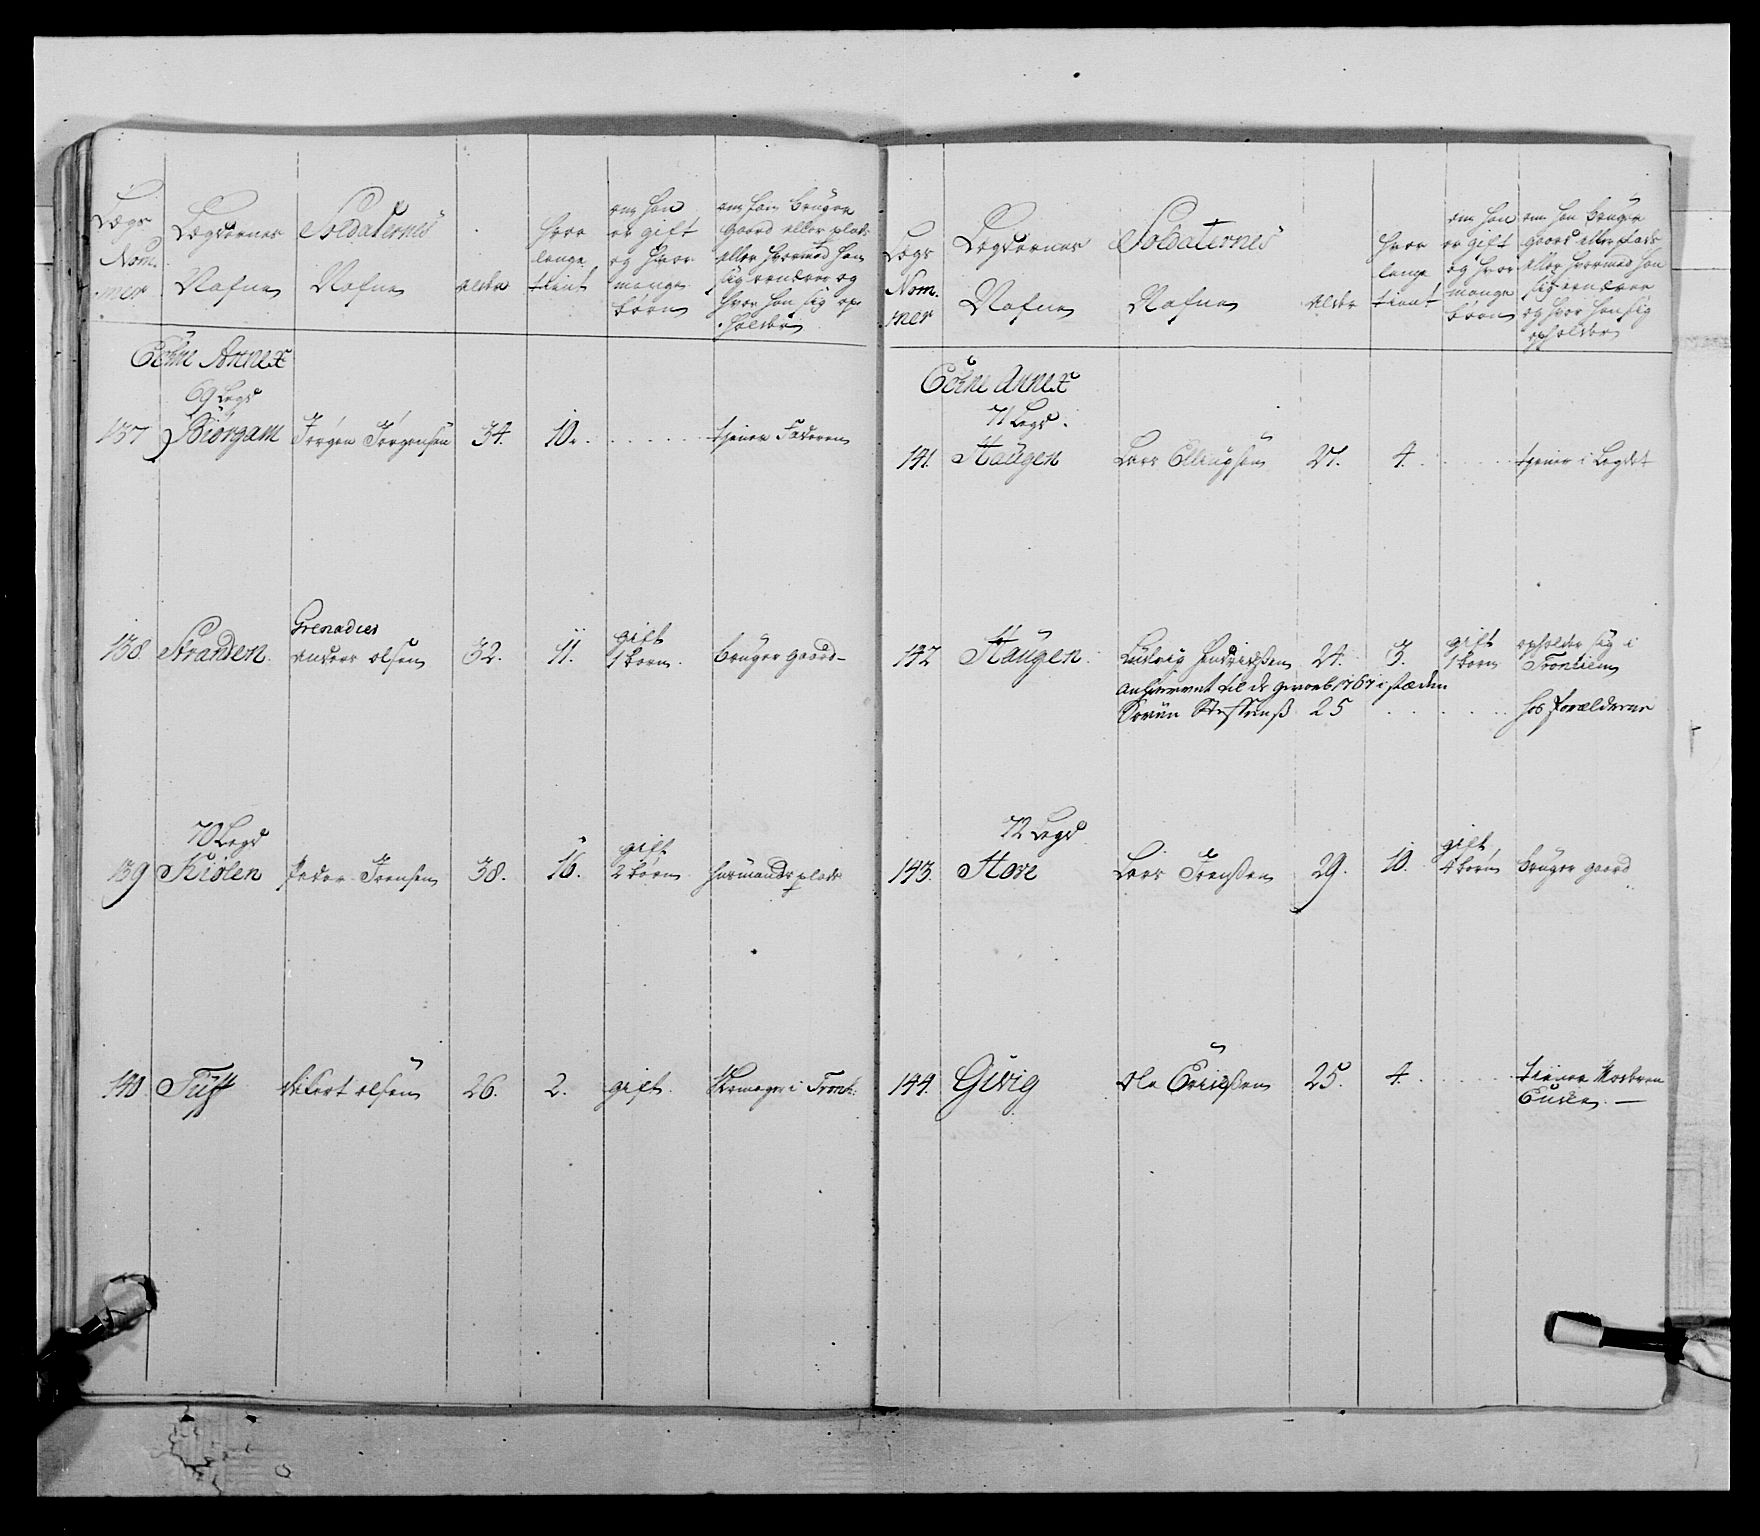 Lægs
Nom.
mer
Lægdernes
Nafne
Soldaternes
Nafne
alder
hvor
længe
tient
om han
er gift
og hvor
mange
børn
om han bruger
gaard eller plads
eller hvormed han
sig ernærer og
hvor han sig op
holder
Annex
69 Legd
137 Biörgam Jørgen Jørgensen 34. 10. tjener Faderen
Grenadier
138 Stranden Anders Olsen 32. 11. gift 1 barn bruger gaard
70 Legd
139 Kiölen Peder Joensen 38. 16. gift 2 børn huusmands plads
140 Tuff Sivert Olsen 26. 2. gift i Tronh:
Lægs
Nom.
mer
Lægdernes
Nafne
Soldaternes
Nafne
alder
hvor
længe
tient
om han
er gift
og hvor
mange
børn
om han bruger
gaard eller plads
eller hvormed han
sig ernærer
og hvor han sig
opholder
Annex
71 Legd.
141. Haugen Lars Ellingsen 27. 4. tjener i Legdet
142 Haugen Ludvig Hendrichsen 24. 3. gift 1 barn opholder sig i
Tronhiem
til de 1767 i stæden
25 hos Forælderne
72 Legd
143. Hove Lars Joensen 29. 10. gift børn bruger gaard
144. Givig Ola Erichsen 25. 4. tiener